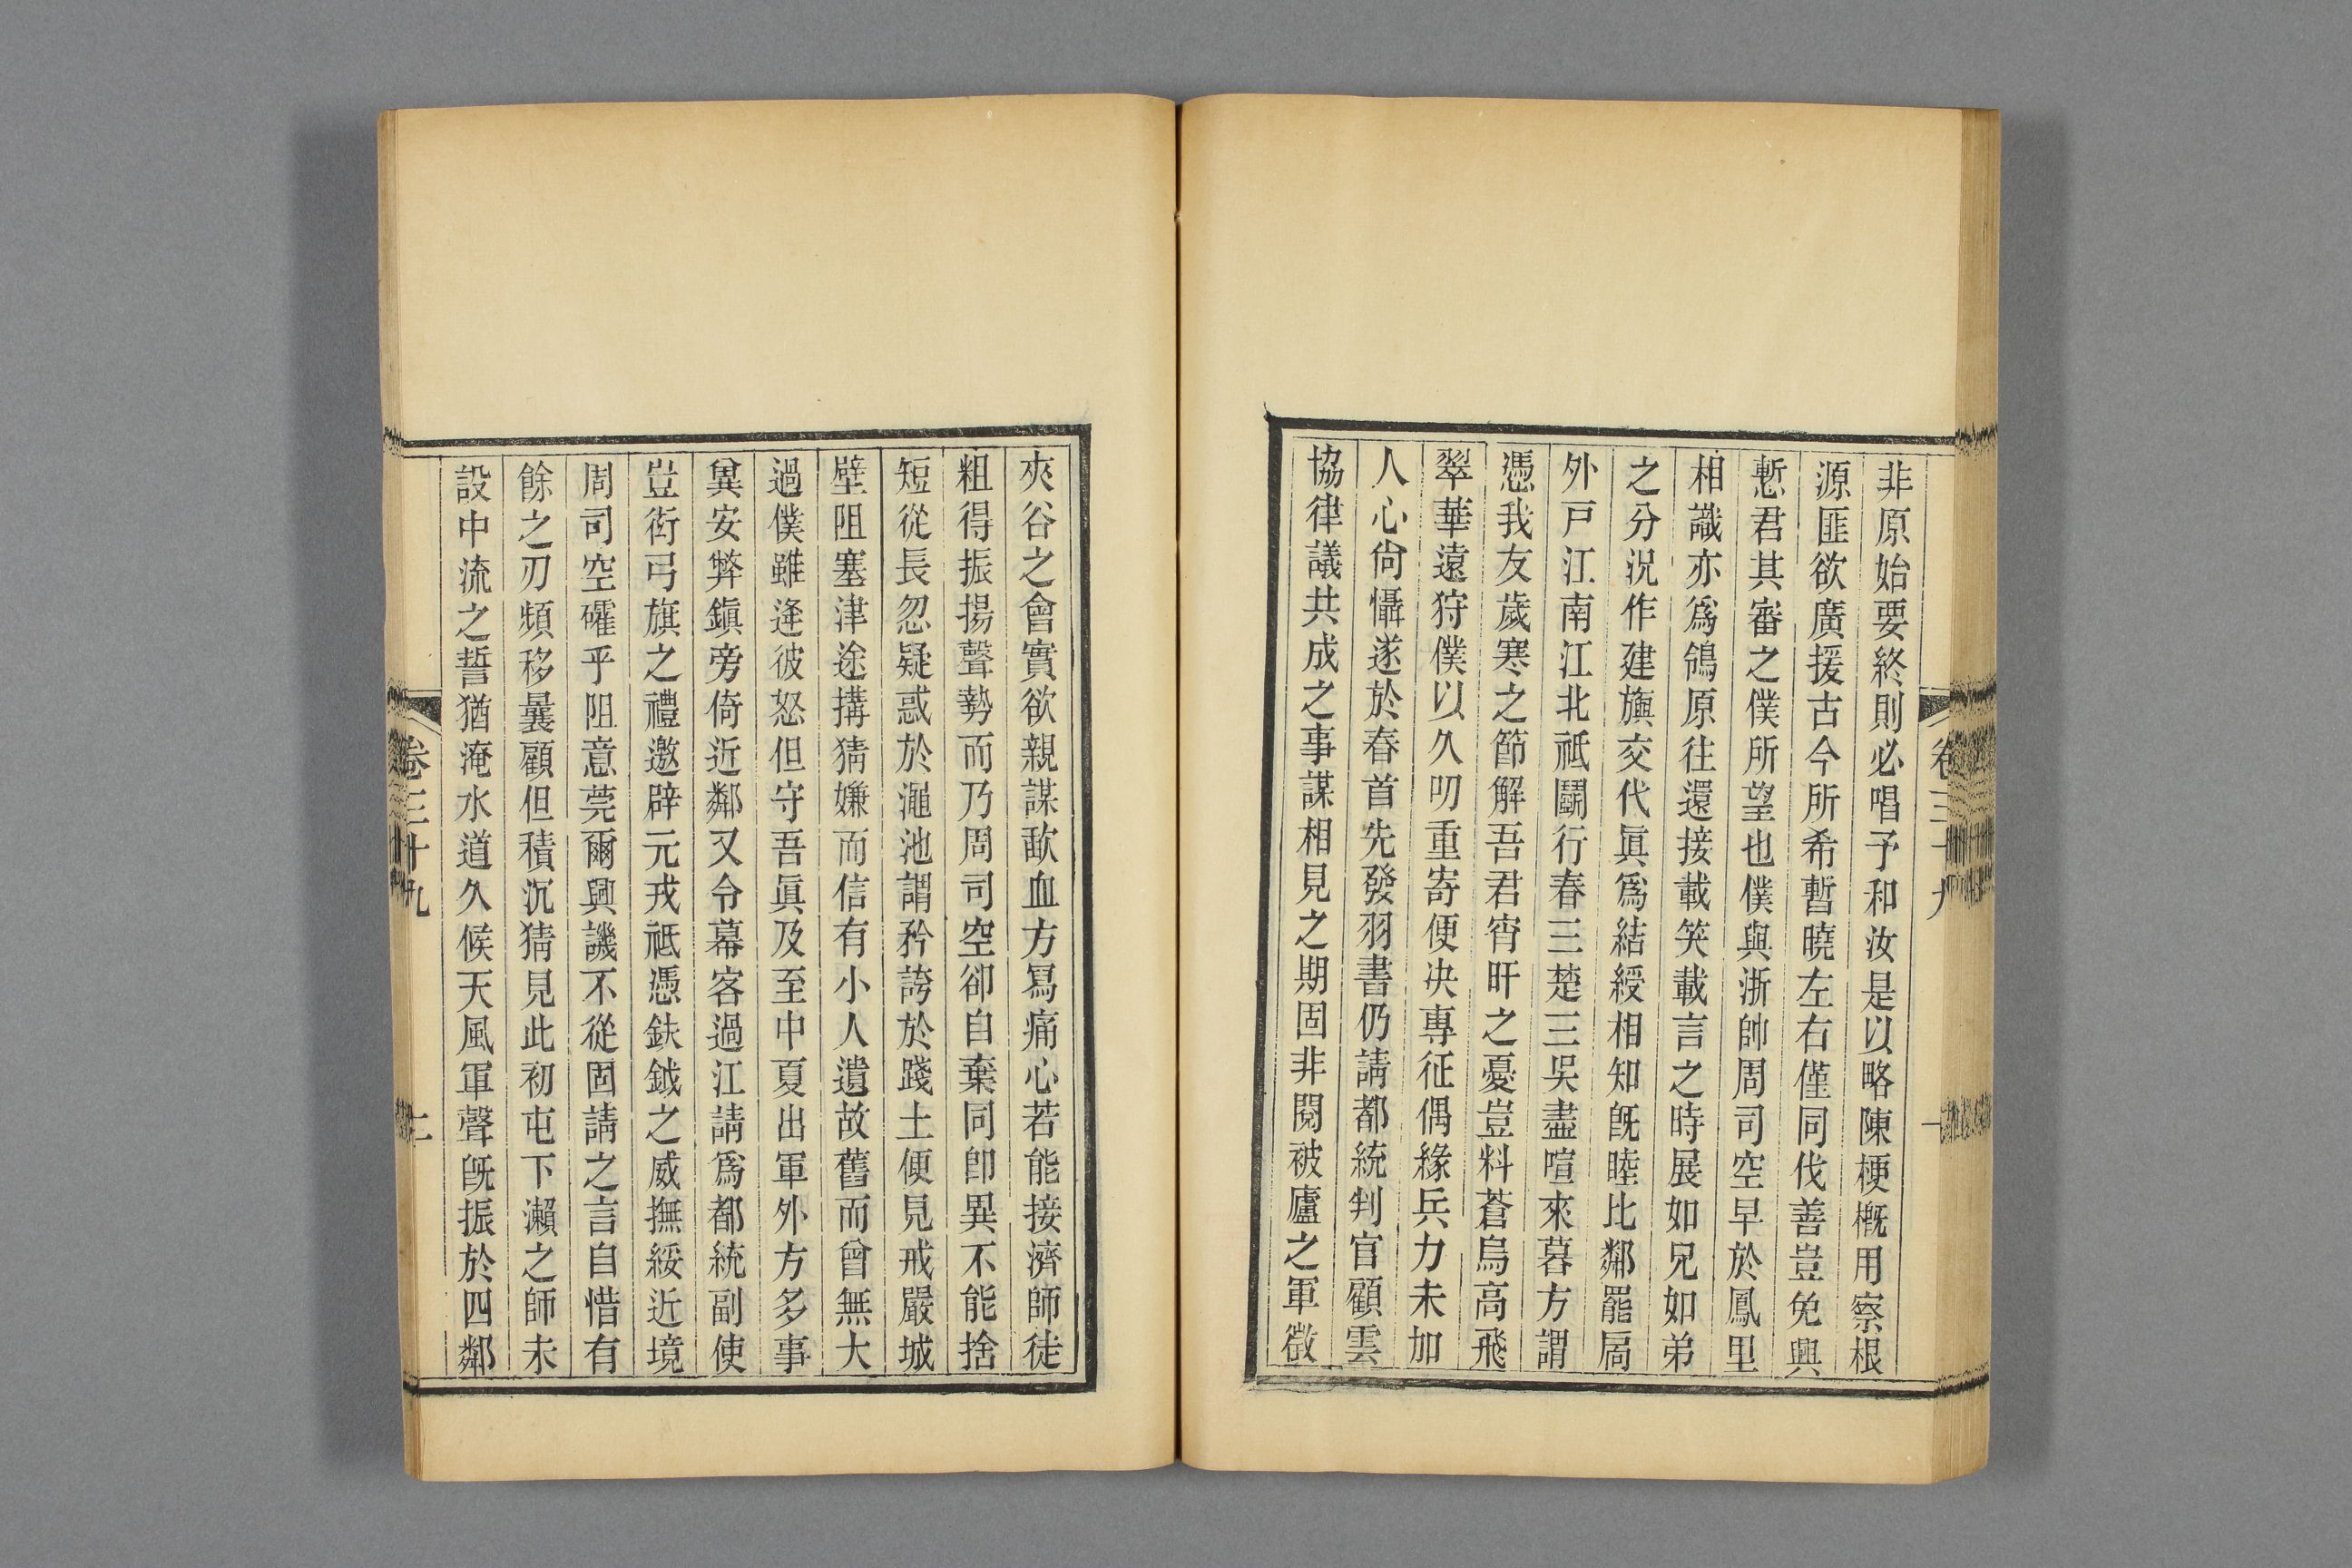 非原始要終則必唱予和汝是以略陳梗槪用察根
源匪欲廣援古今所希暫曉左右僅同伐善豈免興
慙君其審之僕所望也僕與浙帥周司空早於鳳里
相識亦爲鴒原往還接載笑載言之時展如兄如弟
之分況作建旟交代眞爲結綬相知旣睦比鄰罷扃
外戸江南江北祗鬭行春三楚三吳盡喧來暮方謂
憑我友歲寒之節解吾君宵旰之憂豈料蒼烏高飛
翠華遠狩僕以久叨重寄便决專征偶緣兵力未加
人心尙懾遂於春首先發羽書仍請都統判官顧雲
協律議共成之事謀相見之期固非閱被廬之軍徵
卷三十九
夾谷之會實欲親謀歃血方冩痛心若能接濟師徒
粗得振揚聲勢而乃周司空卻自棄同卽異不能捨
短從長忽疑惑於澠池謂矜誇於踐土便見戒嚴城
壁阻塞津途搆猜嫌而信有小人遺故舊而曾無大
過僕雖逢彼怒但守吾眞及至中夏出軍外方多事
兾安弊鎭旁倚近鄰又令幕客過江請爲都統副使
豈銜弓旗之禮邀辟元戎祗憑鈇鉞之威撫綏近境
周司空確乎阻意莞爾興譏不從固請之言自惜有
餘之刃頻移曩顧但積沉猜見此初屯下瀨之師未
設中流之誓猶淹水道久候天風軍聲旣振於四鄰
卷三十九
二